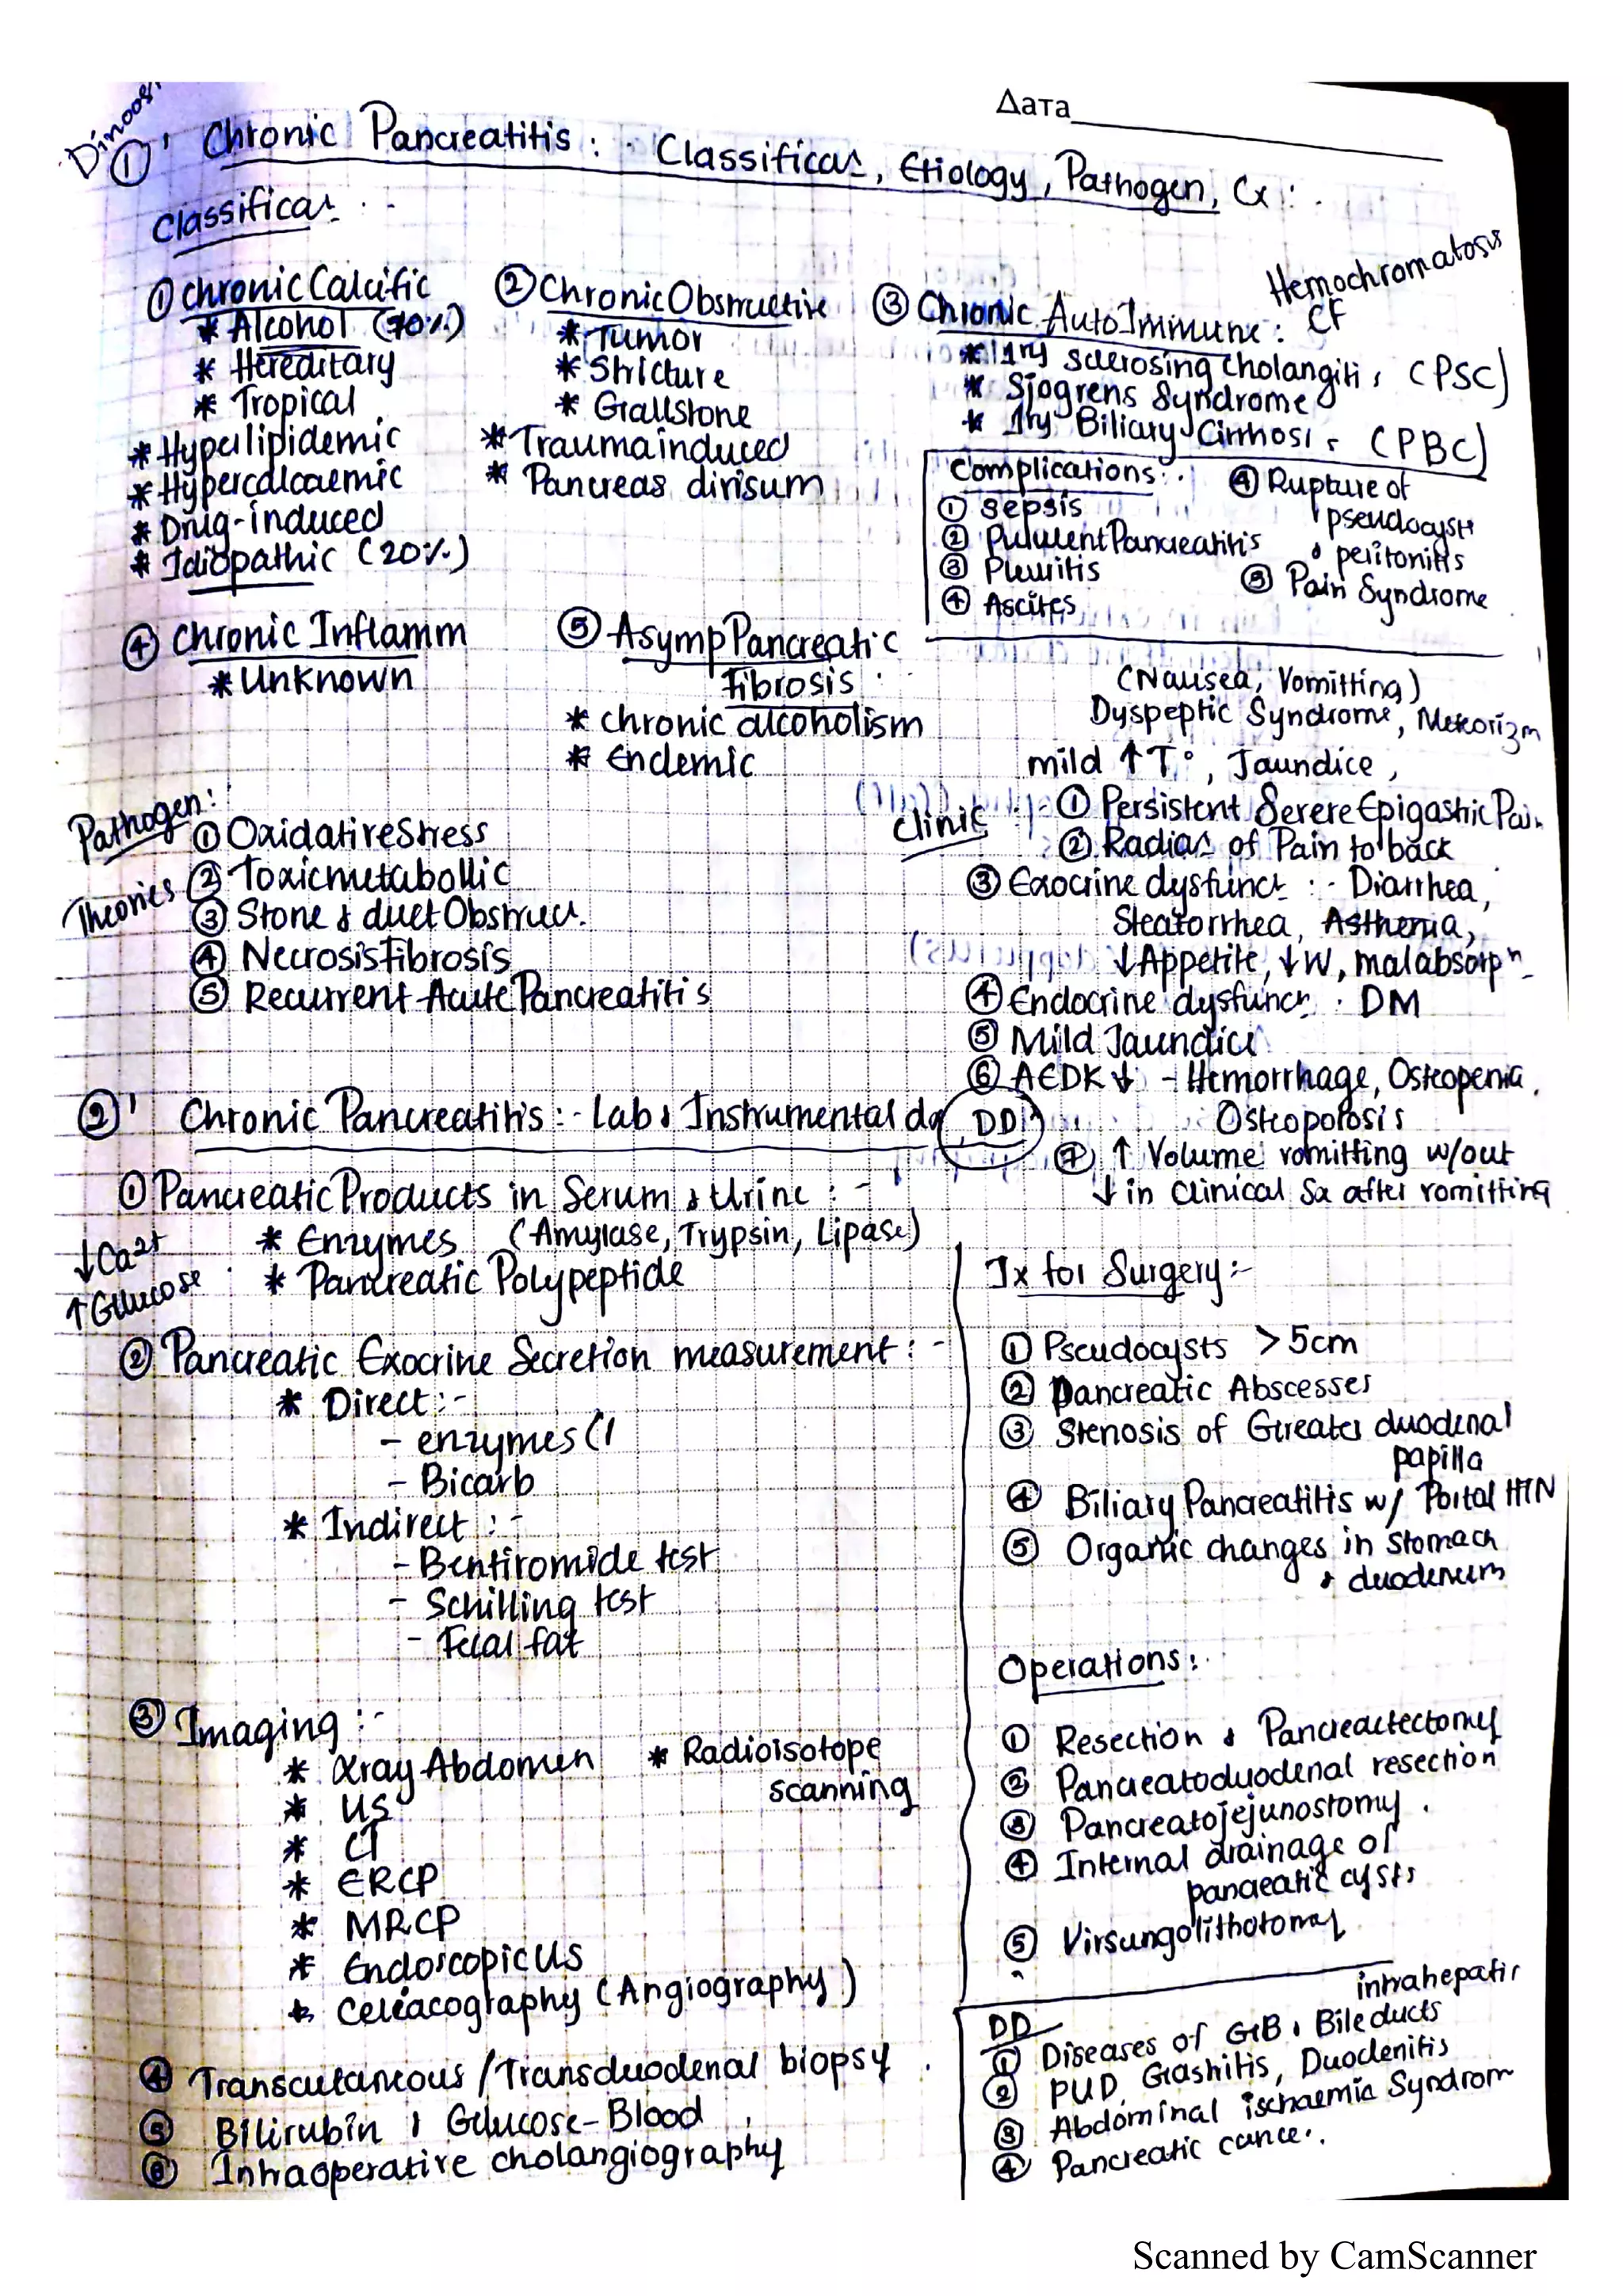 Dinoosh
Дата
①' Chronic Pancreatitis : - Classifican, Etiology, Pathogen, Cx : -
Classifican : -
① Chronic Calcific
* Alcohol (70%)
* Hereditary
* Tropical
* Hyperlipidemic
* Hypercalcaemic
* Drug-induced
* Idiopathic (20%)
② Chronic Obstructive
* Tumor
* Stricture
* Gallstone
* Trauma induced
* Pancreas divisum
③ Chronic AutoImmune :
Hemochromatosis
CF
* 1ry sclerosing cholangitis (PSC)
* Sjogrens Syndrome
* 1ry Biliary Cirrhosis (PBC)
Complications : -
① Sepsis
② Purulent Pancreatitis
③ Pleuritis
④ Ascites
④ Rupture of
pseudocyst
& peritonitis
⑤ Pain Syndrome
④ Chronic Inflamm
* Unknown
⑤ Asymp Pancreatic
Fibrosis
* chronic alcoholism
* Endemic
Pathogen :
Theories
① Oxidative Stress
② Toxic metabollic
③ Stone & duct Obstruct.
④ Necrosis Fibrosis
⑤ Recurrent Acute Pancreatitis
(Nausea, Vomitting)
Dyspeptic Syndrome, Meteorizm
mild ↑T°, Jaundice,
Clinic : - ① Persistent Severe Epigastric Pain
② Radian of Pain to back
③ Exocrine dysfunct : - Diarrhea,
Steatorrhea, Asthenia,
↓Appetite, ↓W, malabsorpn
④ Endocrine dysfuncn : DM
⑤ Mild Jaundice
⑥ AEDK↓ - Hemorrhage, Osteopenia,
Osteoporosis
⑦ ↑ Volume vomitting w/out
↓ in Clinical Sx after vomitting
②' Chronic Pancreatitis : - Lab & Instrumental dg DD
① Pancreatic Products in Serum & Urine : -
* Enzymes (Amylase, Trypsin, Lipase)
* Pancreatic Polypeptide
↓Ca2+
↑Glucose
② Pancreatic Exocrine Secretion measurement : -
* Direct : -
- enzymes
- Bicarb
* Indirect : -
- Bentiromide test
- Schilling test
- Fecal fat
③ Imaging : -
* Xray Abdomen
* US
* CT
* ERCP
* MRCP
* Endoscopic US
* Celiacography (Angiography)
* Radioisotope
scanning
④ Transcutaneous / Transduodenal biopsy
⑤ Bilirubin & Glucose - Blood
⑥ Intraoperative cholangiography
Ix for Surgery : -
① Pseudocysts > 5cm
② Pancreatic Abscesses
③ Stenosis of Greater duodenal
papilla
④ Biliary Pancreatitis w/ Portal HTN
⑤ Organic changes in Stomach
& duodenum
Operations : -
① Resection & Pancreactectomy
② Pancreatoduodenal resection
③ Pancreatojejunostomy
④ Internal drainage of
pancreatic cysts
⑤ Virsungolithotomy
DD
intrahepatic
① Diseases of GB & Bile ducts
② PUD, Gastritis, Duodenitis
③ Abdominal ischaemia Syndrom
④ Pancreatic cancer.
Scanned by CamScanner